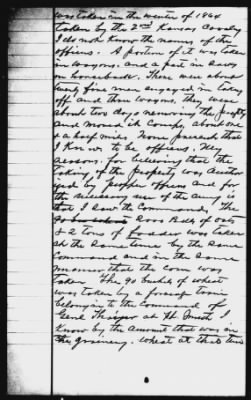 was taken in the winter of 1864
taken by the 2nd Kansas Cavalry
I do not know the names of the
officers. A portion of it was taken
in wagons, and a part in sacks
on horseback. There were about
twenty five men engaged in taking
off and three wagons, they were
about two days removing the property
and moved it to Camp, about one
& a half miles. None present that
I know to be officers. My
reasons for believing that the
taking of the property was author
ized by proper officers and for
the necessary use of the army is
that I saw the Command. The
2000 Bdls of oats
& 2 tons of fodder was taken
at the same time by the same
Command and in the same
manner that the corn was
taken. The 90 bushels of wheat
was taken by a forage train
belonging to the command of
Genl Thayer at Ft. Smith I
know by the amount that was in
the granery. wheat at that time